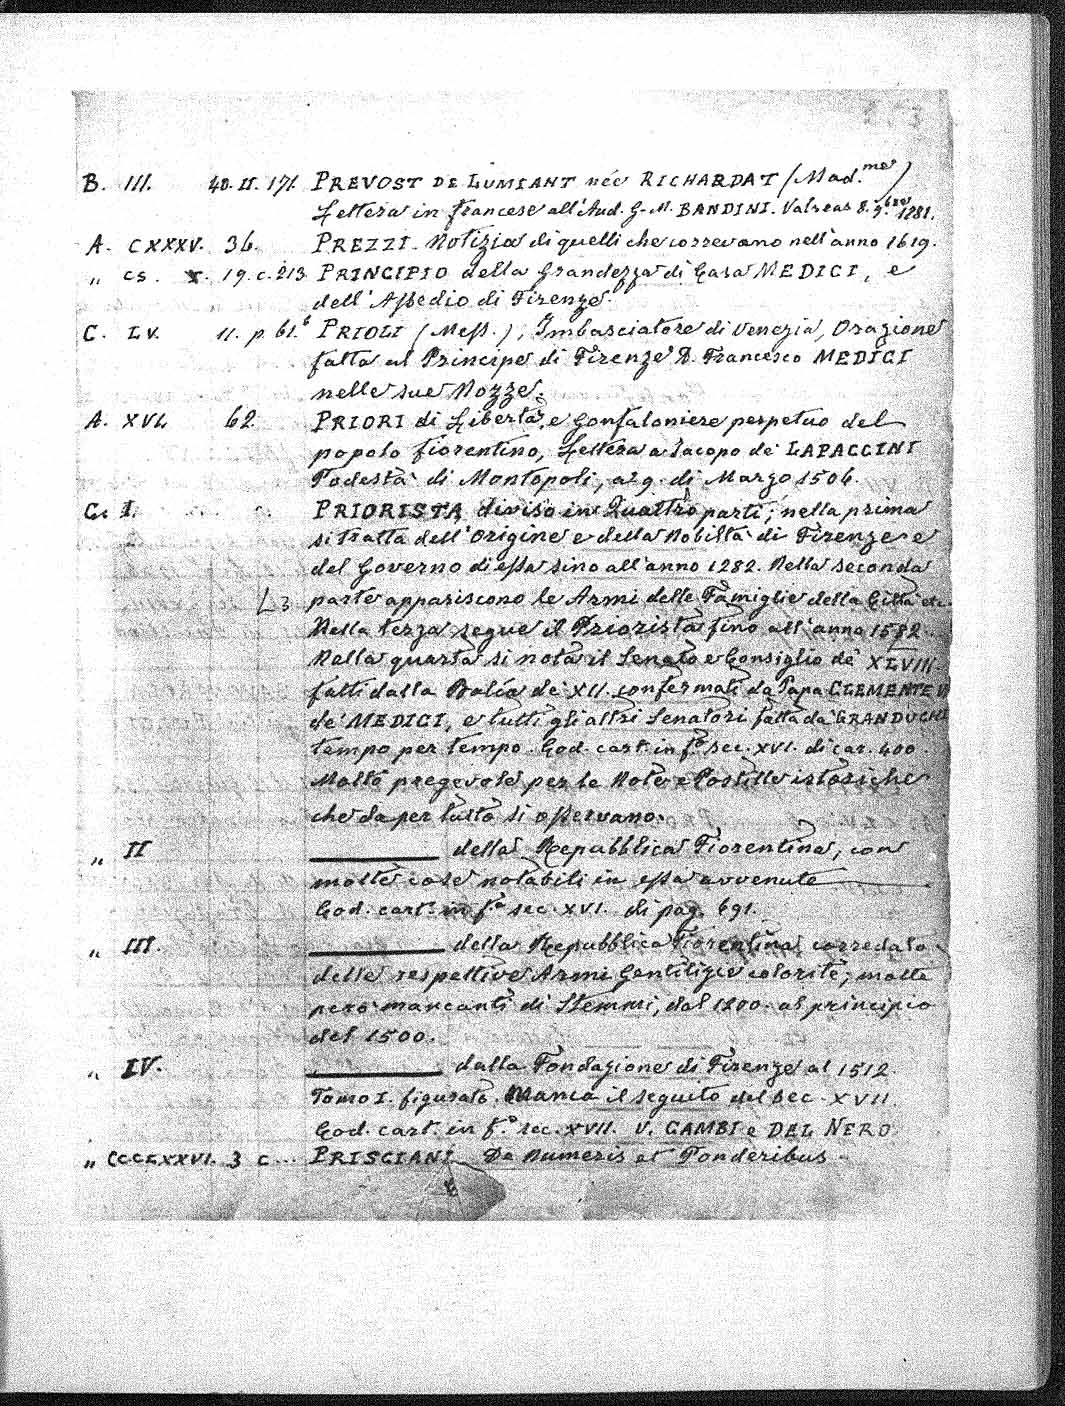 B. III. 40. II. 171. PREVOST DE LUMIANT née RICHARDAT (Mad.me)
Lettera in francese all'Aud. G. M. BANDINI. Valreas 8. 9.bre 1781.
A. CXXXV. 36. PREZZI. Notizia di quelli che correvano nell'anno 1619.
„ CS. X. 19. c. 213 PRINCIPIO della Grandezza di Casa MEDICI, e
dell'Assedio di Firenze.
C. LV. 11. p. 61.6 PRIOLI (Mess.), Imbasciatore di Venezia, Orazione
fatta al Principe di Firenze D. Francesco MEDICI
nelle sue Nozze.
A. XVI. 62. PRIORI di Libertà, e Gonfaloniere perpetuo del
popolo fiorentino, Lettera a Jacopo de' LAPACCINI
Podestà di Montopoli, a 9. di Marzo 1506.
C. I. PRIORISTA diviso in Quattro parti; nella prima
si tratta dell'Origine e della Nobiltà di Firenze e
del Governo di essa sino all'anno 1282. Nella seconda
L3 parte appariscono le Armi delle Famiglie della Città etc.
Nella terza segue il Priorista fino all'anno 1582.
Nella quarta si nota il Senato e Consiglio de' XLVIII.
fatti dalla Balìa de' XII. confermati da Papa CLEMENTE VII
de' MEDICI, e tutti gli altri Senatori fatta da' GRANDUCHI
tempo per tempo. Cod. cart. in f.o sec. XVI. di car. 400.
Molto pregevole per le Note e Postille istoriche
che da per tutto si osservano.
„ II ——— della Repubblica Fiorentina, con
molte cose notabili in essa avvenute
Cod. cart. in f.o sec. XVI. di pag. 691.
„ III. ——— della Repubblica Fiorentina corredato
delle respettive Armi Gentilizie colorite; molte
però mancanti di Stemmi, dal 1200. al principio
del 1500.
„ IV. ——— dalla Fondazione di Firenze al 1512
Tomo I. figurato. Manca il seguito del sec. XVII.
Cod. cart. in f.o sec. XVII. V. GAMBI e DEL NERO
„ CCCCXXVI. 3 c... PRISCIANI De Numeris et Ponderibus